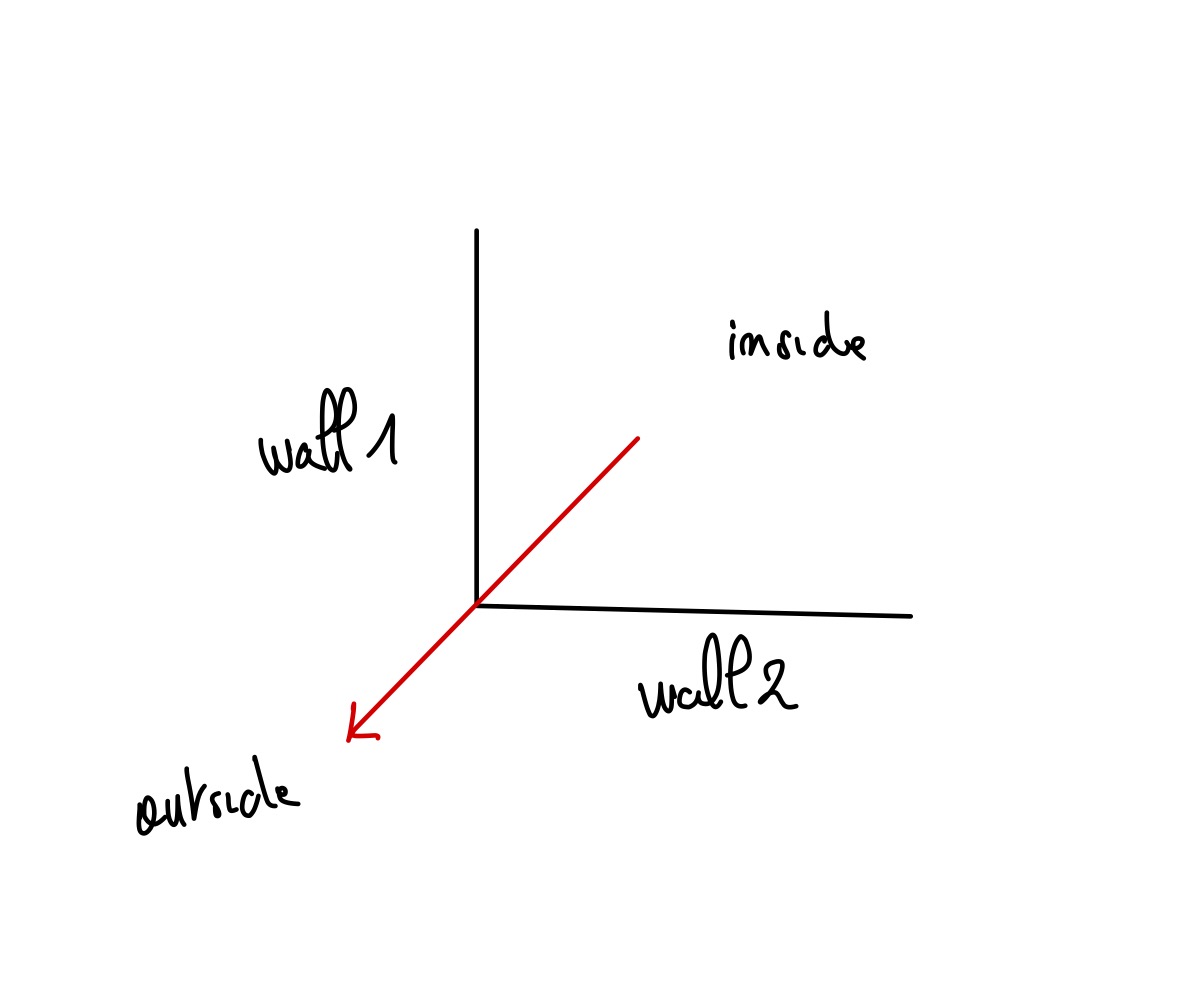 inside
wall 1
wall 2
outside